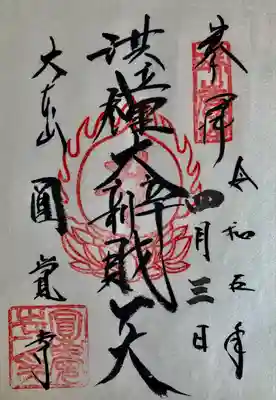 奉拝
令和五年
四月三日
洪鐘大辨財天
大本山
圓覺寺